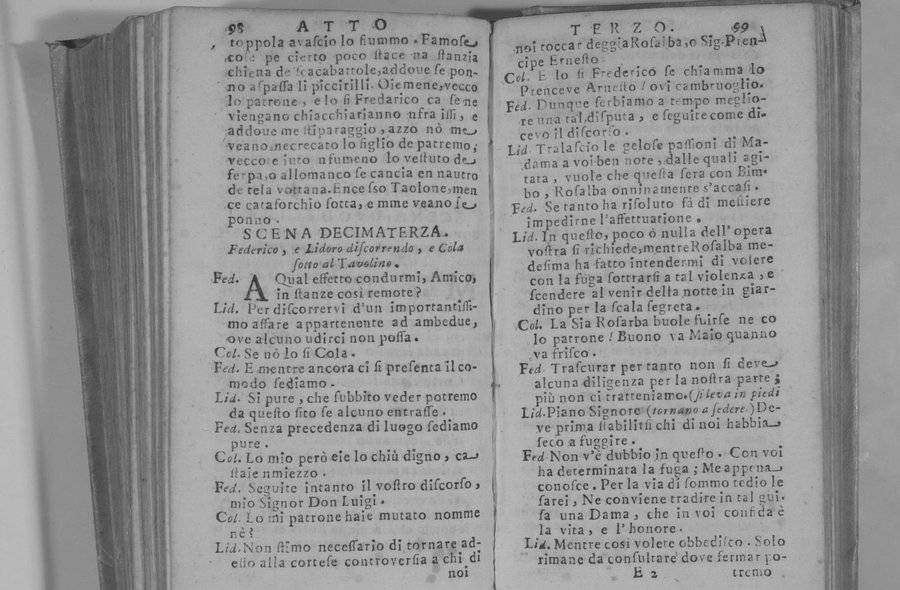 98 ATTO
toppola avascio lo fiummo. Famose
cole pe cierto poco stace na stanzia
chiena de scacabattole, addove se pon-
no aspassa li piccirilli. Oiemene, vecco
lo patrone, e lo si Fredarico ca se ne
viengano chiacchiarianno nfra issi, e
addove me stiparaggio, azzo nò me
veano necrecato lo figlio de patremo;
vecco e iuto nfumeno lo vestuto de
serpa, o allomanco se cancia en nautro
de tela vottana. Ence sso Taolone, men
ce cataforchio sotta, e mme veano se
ponno.
SCENA DECIMATERZA.
Federico, e Lidoro discorrendo, e Cola
sotto al Tavolino.
Fed. A Qual effetto condurmi, Amico,
in stanze così remote?
Lid. Per discorrervi d'un importantissi-
mo affare appartenente ad ambedue,
ove alcuno udirci non possa.
Col. Se nò lo si Cola.
Fed. E mentre ancora ci si presenta il co-
modo sediamo.
Lid. Si pure, che subbito veder potremo
da questo sito se alcuno entrasse.
Fed. Senza precedenza di luogo sediamo
pure.
Col. Lo mio però eie lo chiù digno, ca
staie nmiezzo.
Fed. Seguite intanto il vostro discorso,
mio Signor Don Luigi.
Col. Lo mi patrone haie mutato nomme
nè?
Lid. Non stimo necessario di tornare ad-
esso alla cortese controversia a chi di
noi
TERZO. 99
noi toccar deggia Rosalba, o Sig. Pren-
cipe Ernesto.
Col. E lo si Frederico se chiamma lo
Prenceve Arnesto! ovi cambruoglio.
Fed. Dunque serbiamo a tempo meglio-
re una tal disputa, e seguite come di-
cevo il discorso.
Lid Tralascio le gelose passioni di Ma-
dama a voi ben note, dalle quali agi-
tata, vuole che questa sera con Bim-
bo, Rosalba onninamente s'accasi.
Fed. Se tanto ha risoluto fà di mestiere
impedirne l'affettuatione.
Lid. In questo, poco ò nulla dell'opera
vostra si richiede, mentre Rosalba me-
desima ha fatto intendermi di volere
con la fuga sottrarsi a tal violenza, e
scendere al venir della notte in giar-
dino per la scala segreta.
Col. La Sia Rosarba buole fuirse ne co
lo patrone! Buono va Maio quanno
va frisco.
Fed. Trascurar per tanto non si deve
alcuna diligenza per la nostra parte;
più non ci tratteniamo. (si leva in piedi
Lid. Piano Signore (tornano a sedere.) De-
ve prima stabilirsi chi di noi habbia
seco a fuggire.
Fed Non v'è dubbio in questo. Con voi
ha determinata la fuga; Me appena
conosce. Per la via di sommo tedio le
sarei, Ne conviene tradire in tal gui-
sa una Dama, che in voi confida è
la vita, e l'honore.
Lid. Mentre così volete obbedisco. Solo
rimane da consultare dove fermar po-
E 2 tremo